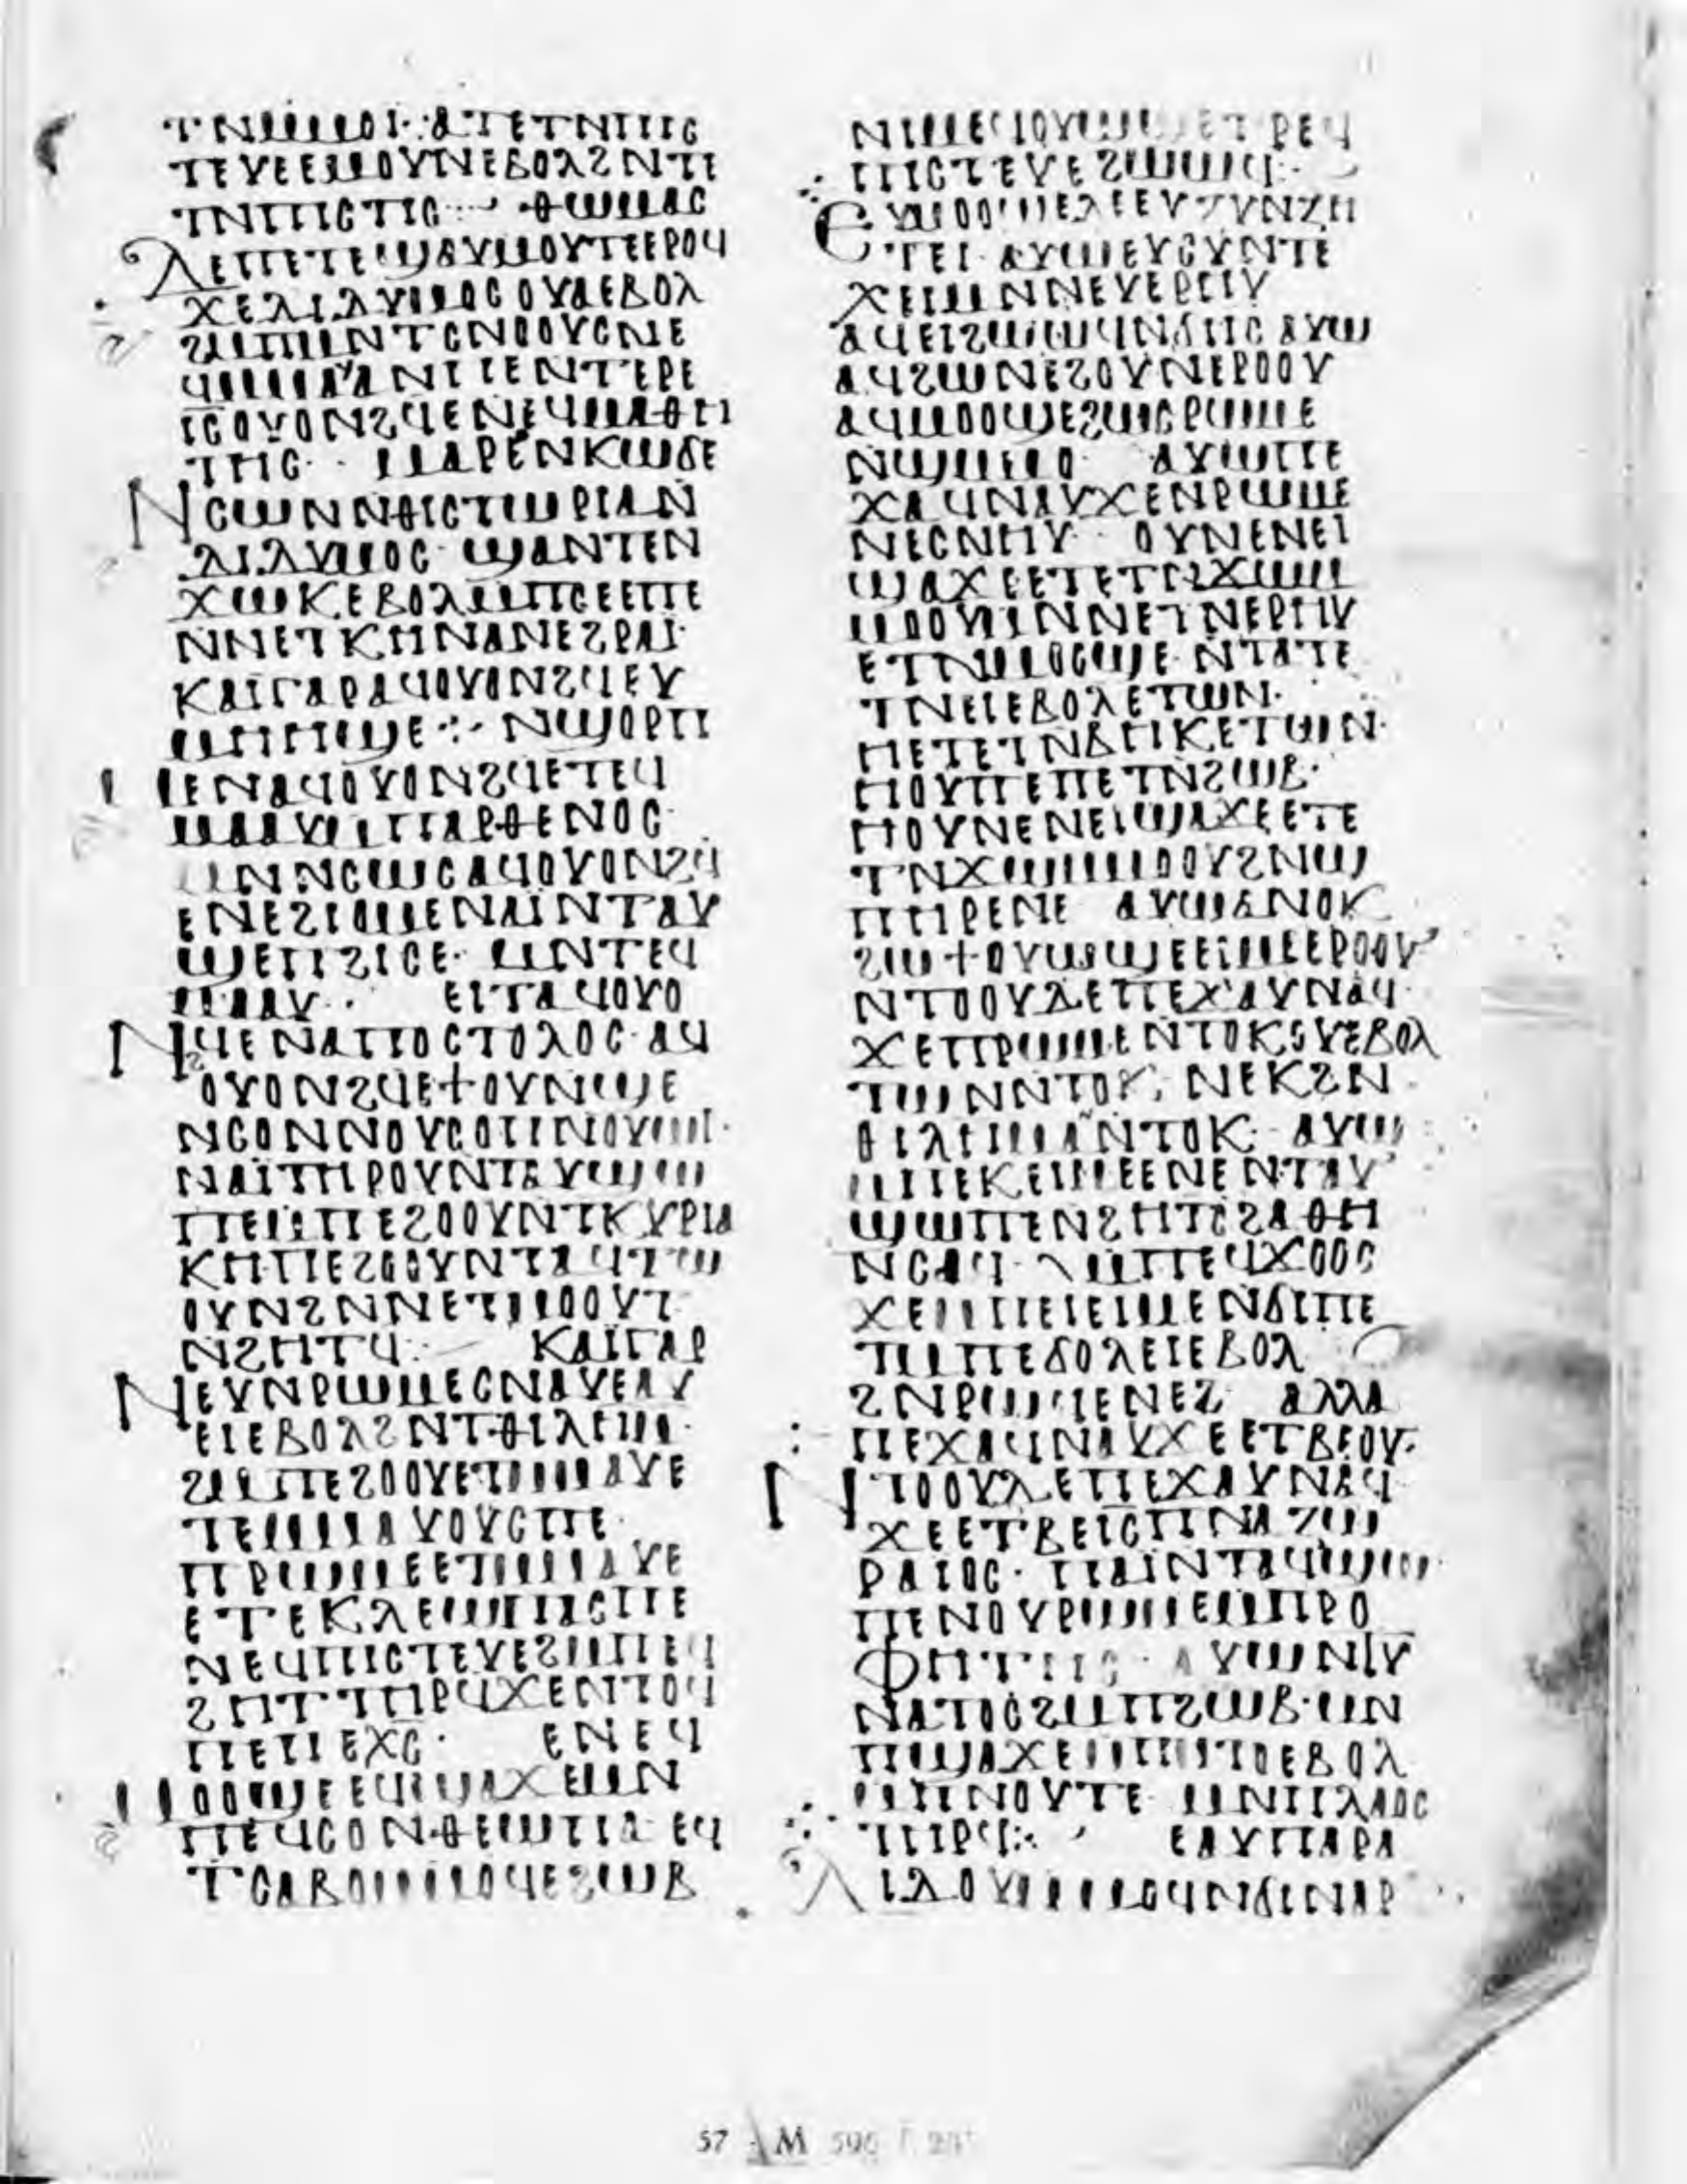 ⲧⲛⲙⲙⲟⲓ· ⲁⲧⲉⲧⲛⲡⲓⲥ
ⲧⲉⲩⲉⲉⲙⲟⲩⲛⲉⲃⲟⲗϩⲛⲧⲉ
ⲧⲛⲡⲓⲥⲧⲓⲥ· ⲑⲱⲙⲁⲥ
ⲇⲉⲡⲉⲧⲉϣⲁⲩⲙⲟⲩⲧⲉⲉⲣⲟϥ
ϫⲉⲇⲓⲇⲩⲙⲟⲥ ⲟⲩⲁⲉⲃⲟⲗ
ϩⲙⲡⲙⲛⲧⲥⲛⲟⲟⲩⲥⲡⲉ
ϥⲙⲙⲁⲩⲁⲛⲡⲉⲛⲧⲉⲣⲉ
ⲓⲥⲟⲩⲟⲛϩϥⲉⲛⲉϥⲙⲁⲑⲏ
ⲧⲏⲥ· ⲙⲁⲣⲉⲛⲕⲱϭⲉ
ⲛⲥⲱⲛⲛⲑⲓⲥⲧⲱⲣⲓⲁⲛ
ⲇⲓⲇⲩⲙⲟⲥ· ϣⲁⲛⲧⲉⲛ
ϫⲱⲕⲉⲃⲟⲗⲙⲡⲥⲉⲉⲡⲉ
ⲛⲛⲉⲧⲕⲏⲛⲁⲛⲉϩⲣⲁⲓ·
ⲕⲁⲓⲅⲁⲣⲁϥⲟⲩⲟⲛϩϥⲉⲩ
ⲙⲏⲏϣⲉ· ⲛϣⲟⲣⲡ
ⲙⲉⲛⲁϥⲟⲩⲟⲛϩϥⲉⲧⲉϥ
ⲙⲁⲁⲩⲙⲡⲁⲣⲑⲉⲛⲟⲥ·
ⲙⲛⲛⲥⲱⲥⲁϥⲟⲩⲟⲛϩϥ
ⲉⲛⲉϩⲓⲟⲙⲉⲛⲁⲓⲛⲧⲁⲩ
ϣⲉⲡϩⲓⲥⲉ· ⲙⲛⲧⲉϥ
ⲙⲁⲁⲩ· ⲉⲓⲧⲁϥⲟⲩⲟ
ⲛϩϥⲉⲛⲁⲡⲟⲥⲧⲟⲗⲟⲥ· ⲁϥ
ⲟⲩⲟⲛϩϥⲉϯⲟⲩⲛϣⲉ
ⲛⲥⲟⲛⲛⲟⲩⲥⲟⲡⲛⲟⲩⲱⲧ·
ⲛⲁⲓⲧⲏⲣⲟⲩⲛⲧⲁⲩϣⲱ
ⲡⲉⲙⲡⲉϩⲟⲟⲩⲛⲧⲕⲩⲣⲓⲁ
ⲕⲏⲡⲉϩⲟⲟⲩⲛⲧⲁϥⲧⲱ
ⲟⲩⲛϩⲛⲛⲉⲧⲙⲟⲟⲩⲧ
ⲛϩⲏⲧϥ· ⲕⲁⲓⲅⲁⲣ
ⲛⲉⲩⲛⲣⲱⲙⲉⲥⲛⲁⲩⲉⲁⲩ
ⲉⲓⲉⲃⲟⲗϩⲛⲧⲑⲓⲗⲏⲙ·
ϩⲙⲡⲉϩⲟⲟⲩⲉⲧⲙⲙⲁⲩⲉ
ⲧⲉⲙⲙⲁⲩⲟⲩⲥⲡⲉ
ⲡⲣⲱⲙⲉⲉⲧⲙⲙⲁⲩⲉ
ⲉⲧⲉⲕⲗⲉⲱⲡⲁⲥⲡⲉ
ⲛⲉϥⲡⲓⲥⲧⲉⲩⲉϩⲙⲡⲉϥ
ϩⲏⲧ ⲧⲏⲣϥϫⲉⲛⲧⲟϥ
ⲡⲉⲡⲉⲭⲥ· ⲉⲛⲉϥ
ⲙⲟⲟϣⲉⲉϥϣⲁϫⲉⲙⲛ
ⲡⲉϥⲥⲟⲛⲑⲉⲱⲧⲓⲁ· ⲉϥ
ⲧⲥⲁⲃⲟⲙⲙⲟϥⲉϩⲱⲃ
ⲛⲓⲙⲉⲧⲟⲩ ⲉⲧⲣⲉϥ
ⲡⲓⲥⲧⲉⲩⲉϩⲱⲱϥ·
ⲉⲩⲙⲟⲟϣⲉⲇⲉⲉⲩⲍⲩⲛⲍⲏ
ⲧⲉⲓ· ⲁⲩⲱⲉⲩⲥⲩⲛⲧⲉ
ϫⲉⲙⲛⲛⲉⲩⲉⲣⲏⲩ
ⲁϥⲉⲓϩⲱⲱϥⲛϭⲓⲓⲥ ⲁⲩⲱ
ⲁϥϩⲱⲛⲉϩⲟⲩⲛⲉⲣⲟⲟⲩ
ⲁϥⲙⲟⲟϣⲉϩⲱⲥⲣⲱⲙⲉ
ⲛϣⲙⲙⲟ ⲁⲩⲱⲡⲉ
ϫⲁϥⲛⲁⲩϫⲉⲛⲣⲱⲙⲉ
ⲛⲉⲥⲛⲏⲩ· ⲟⲩⲛⲉⲛⲉⲓ
ϣⲁϫⲉⲉⲧⲉⲧⲛϫⲱⲙ
ⲙⲟⲟⲩⲙⲛⲛⲉⲧⲛⲉⲣⲏⲩ
ⲉⲧⲛⲙⲟⲟϣⲉ· ⲛⲧⲁⲧⲉ
ⲧⲛⲉⲓⲉⲃⲟⲗⲉⲧⲱⲛ·
ⲏⲉⲧⲉⲧⲛⲃⲏⲕⲉⲧⲱⲛ·
ⲏⲟⲩⲡⲉⲡⲉⲧⲛϩⲱⲃ·
ⲏⲟⲩⲛⲉⲛⲉⲓϣⲁϫⲉⲉⲧⲉ
ⲧⲛϫⲱⲙⲙⲟⲟⲩϩⲛϣ
ⲡⲏⲣⲉⲛⲉ ⲁⲩⲱⲁⲛⲟⲕ
ϩⲱϯⲟⲩⲱϣⲉⲉⲓⲙⲉⲉⲣⲟⲟⲩ
ⲛⲧⲟⲟⲩⲇⲉⲡⲉϫⲁⲩⲛⲁϥ
ϫⲉⲡⲣⲱⲙⲉⲛⲧⲟⲕⲟⲩⲉⲃⲟⲗ
ⲧⲱⲛⲛⲧⲟⲕ· ⲛⲉⲕϩⲛ
ⲑⲓⲗⲏⲙⲁⲛⲛⲧⲟⲕ· ⲁⲩⲱ
ⲙⲡⲉⲕⲉⲓⲙⲉⲉⲛⲉⲛⲧⲁⲩ
ϣⲱⲡⲉⲛϩⲏⲧⲥϩⲁⲑⲏ
ⲛⲥⲁϥ· ⲙⲡⲉϥϫⲟⲟⲥ
ϫⲉⲙⲡⲉⲓⲉⲓⲙⲉⲛϭⲓⲡⲉ
ⲧⲙⲡⲉϭⲟⲗⲉⲓⲉⲃⲟⲗ
ϩⲛⲣⲱϥⲉⲛⲉϩ ⲁⲗⲗⲁ
ⲡⲉϫⲁϥⲛⲁⲩϫⲉⲉⲧⲃⲉⲟⲩ·
ⲛⲧⲟⲟⲩⲇⲉⲡⲉϫⲁⲩⲛⲁϥ
ϫⲉⲉⲧⲃⲉⲓⲥⲡⲛⲁⲍⲱ
ⲣⲁⲓⲟⲥ· ⲡⲁⲓⲛⲧⲁϥϣⲱ
ⲡⲉⲛⲟⲩⲣⲱⲙⲉⲙⲡⲣⲟ
ⲫⲏⲧⲏⲥ· ⲁⲩⲱⲛⲇⲩ
ⲛⲁⲧⲟⲥϩⲙⲡϩⲱⲃ·ⲙⲛ
ⲡϣⲁϫⲉⲙⲡⲙⲧⲟⲉⲃⲟⲗ
ⲙⲡⲛⲟⲩⲧⲉ ⲙⲛⲡⲗⲁⲟⲥ
ⲧⲏⲣϥ· ⲉⲁⲩⲡⲁⲣⲁ
ⲇⲓⲇⲟⲩⲙⲙⲟϥⲛϭⲓⲛⲁⲣ
57 M